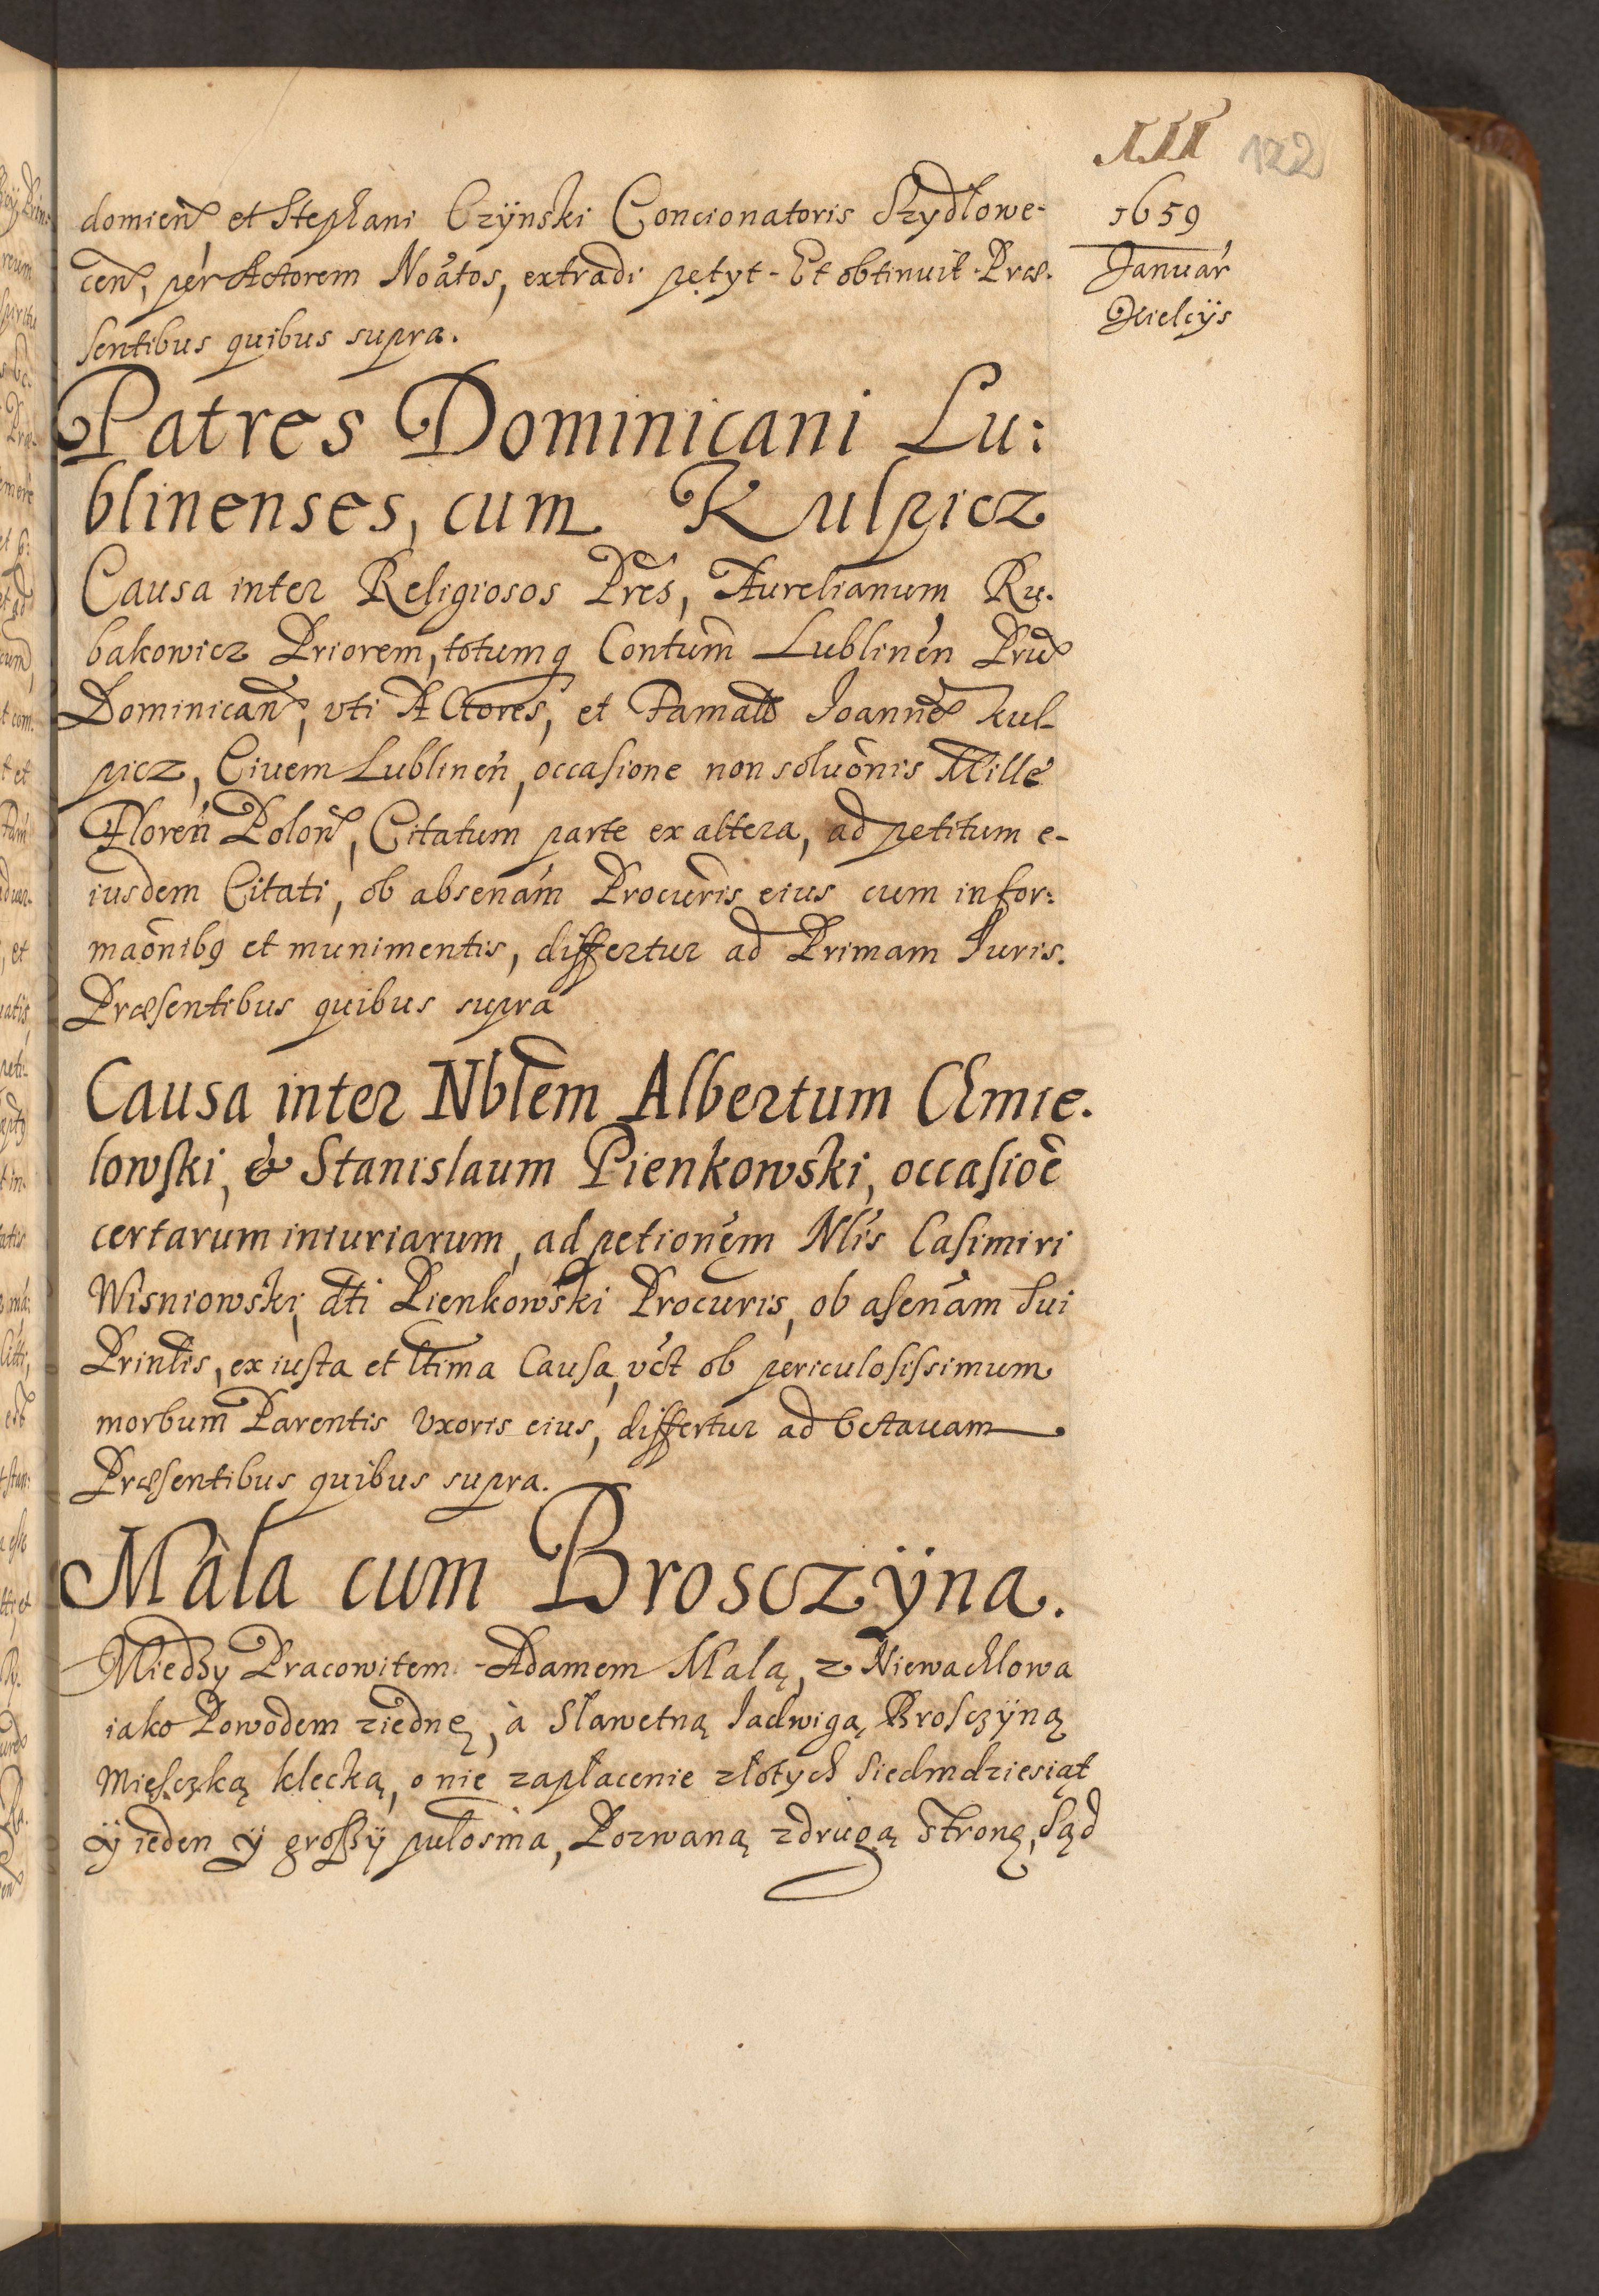 122
1659
Januar
Kielcÿs
domien et Stephani Czÿnski Concionatoris Szydłowe-
cen, per Actorem Noatos, extradi petyt - Et obtinuit Præ-
sentibus quibus supra.
Patres Dominicani Lu:
blinenses, cum Kulpicz
Causa inter Religiosos Pres, Aurelianum Ru-
bakowicz Priorem, totumq Contum Lublinen Prud
Dominican, vti Actores, et Famatu Joannem Kul-
picz, Ciuem Lublinen, occasione non soluonis Mille
Floren Polon, Citatum parte ex altera, ad petitum e-
iusdem Citati, ob absenam Procuris eius cum infor:
maonibq et munimentis, differtur ad Primam Juris.
Præsentibus quibus supra
Causa inter Nblem Albertum Chmie-
lowski, & Stanislaum Pienkowski, occasioe
certarum iniuriarum, ad petionem Nlis Casimiri
Wisniowski, dti Pienkowski Procuris, ob asenam sui
Prinlis, ex iusta et ltima Causa, vct ob periculosissimum
morbum Parentis Vxoris eius, differtur ad Octauam
Præsentibus quibus supra.
Màla cum Brosczÿna.
Miedzy Pracowitem Adamem Malą, z Niewachlowa
iako Powodem ziednę, à Sławetną Jadwigą Brosczÿną
Mięsczką klecką, o nie zapłacenie złotych siedmdziesiąt
ÿ ieden ÿ groszÿ pułosma, Pozwaną zdrugą stronę, Sąd